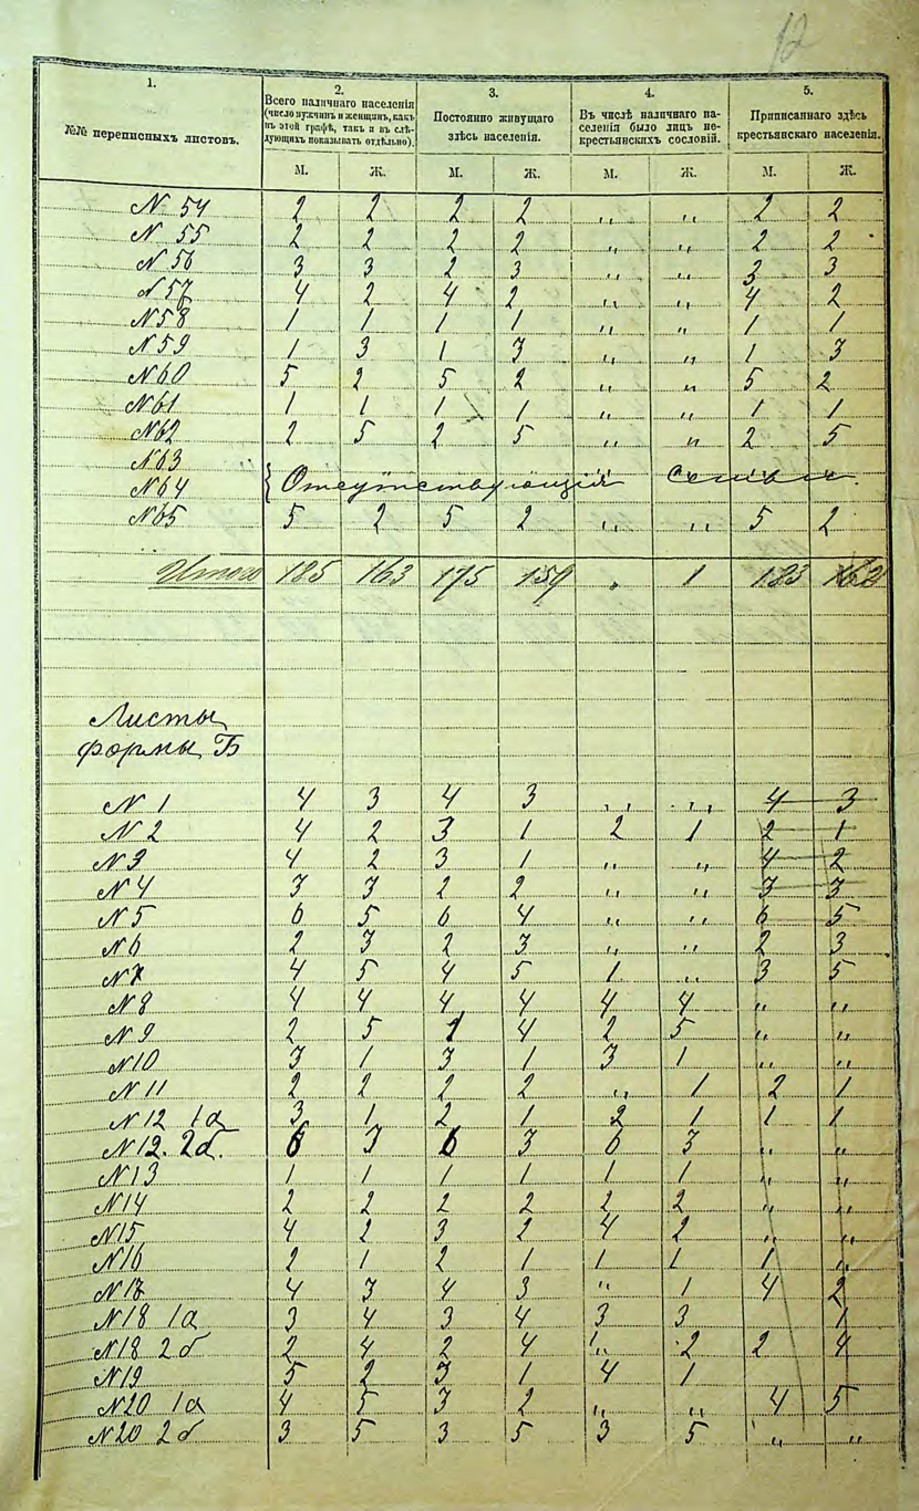 12
1.
№№ переписныхъ листовъ.
2.
Всего наличнаго населенія
(число мужчинъ и женщинъ, какъ
въ этой графѣ, такъ и въ слѣ-
дующихъ показывать отдѣльно).
3.
Постоянно живущаго
здѣсь населенія.
4.
Въ числѣ наличнаго на-
селенія было лицъ не-
крестьянскихъ сословій.
5.
Приписаннаго здѣсь
крестьянскаго населенія.
М. Ж. М. Ж. М. Ж. М. Ж.
N 54 2 2 2 2 „ „ 2 2
N 55 2 2 2 2 „ „ 2 2
N 56 3 3 2 3 „ „ 3 3
N 57 4 2 4 2 „ „ 4 2
N 58 1 1 1 1 „ „ 1 1
N 59 1 3 1 3 „ „ 1 3
N 60 5 2 5 2 „ „ 5 2
N 61 1 1 1 1 „ „ 1 1
N 62 2 5 2 5 „ „ 2 5
N 63
N 64 Отсутствующія семьи.
N 65 5 2 5 2 „ „ 5 2
Итого 185 163 175 159 „ 1 183 162
Листы
формы Б
N 1 4 3 4 3 „ „ 4 3
N 2 4 2 3 1 2 1 2 1
N 3 4 2 3 1 „ „ 4 2
N 4 3 3 2 2 „ „ 3 3
N 5 6 5 6 4 „ „ 6 5
N 6 2 3 2 3 „ „ 2 3
N 7 4 5 4 5 1 „ 3 5
N 8 4 4 4 4 4 4 „ „
N 9 2 5 1 4 2 5 „ „
N 10 3 1 3 1 3 1 „ „
N 11 2 2 2 2 „ 1 2 1
N 12 1а 3 1 2 1 2 1 1 1
N 12. 2б. 6 3 6 3 6 3 „ „
N 13 1 1 1 1 1 1 „ „
N 14 2 2 2 2 2 2 „ „
N 15 4 2 3 2 4 2 „ „
N 16 2 1 2 1 1 1 1 „
N 17 4 3 4 3 „ 1 4 2
N 18 1а 3 4 3 4 3 3 1
N 18 2б 2 4 2 4 „ 2 2 4
N 19 5 2 3 1 4 1
N 20 1а 4 5 3 2 „ „ 4 5
N 20 2б 3 5 3 5 3 5 „ „